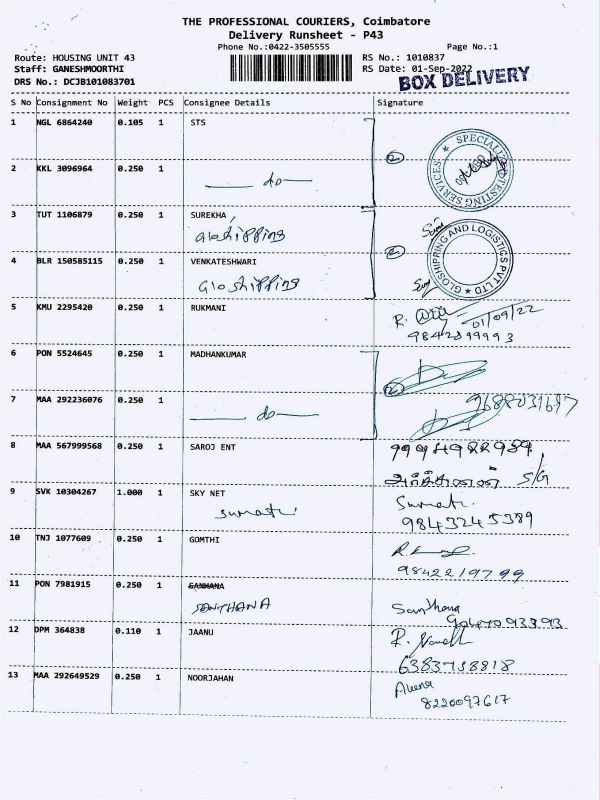 THE PROFESSIONAL COURIERS, Coimbatore
Delivery Runsheet - P43
Phone No.:0422-3505555 Page No.:1
Route: HOUSING UNIT 43 RS No.: 1010837
Staff: GANESHMOORTHI RS Date: 01-Sep-2022
DRS No.: DCJB101083701 BOX DELIVERY
S No Consignment No Weight PCS Consignee Details Signature
1 NGL 6864240 0.105 1 STS
SPECIALIZED TESTING SERVICES
2 KKL 3096964 0.250 1
do
3 TUT 1106879 SUREKHA
0.250 1 Gloshipping
GLOSHIPPING AND LOGISTICS PVT LTD
4 BLR 150585115 0.250 1 VENKATESHWARI
Gloshipping
5 KMU 2295420 0.250 1 RUKMANI
R. 01/09/22
9842899993
6 PON 5524645 0.250 1 MADHANKUMAR
7 MAA 292236076 0.250 1
do 9688031697
8 MAA 567999568 0.250 1 SAROJ ENT
S/G
9 SVK 10304267 1.000 1 SKY NET
sumathi Sumathi
9843245389
10 TNJ 1077609 0.250 1 GOMTHI
9842219799
11 PON 7981915 0.250 1 SANHANA
SANTHANA Santhana
12 DPM 364838 0.110 1 JAANU
R.
6383738818
13 MAA 292649529 0.250 1 NOORJAHAN
8220097617